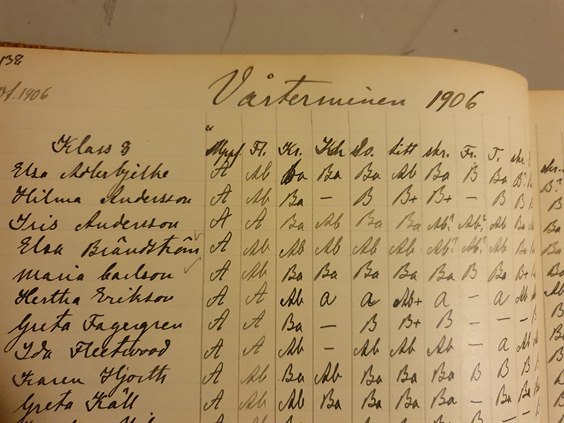 138
Vt. 1906
Vårterminen 1906
Klass 8 Fl. Kr. Khr Do. Litt skr. Fr. T. skr.
Elsa Adlerbjelke A Ab Ba Ba Ba Ab Ba B Ba B?
Hilma Andersson A Ab Ba — B B+ B+ — B B
Iris Andersson A A Ba Ab Ba Ba Ab? Ab? Ab Ba
Elsa Brändström A Ab Ab Ab Ab Ab Ab? Ab? Ab Ba
Maria Carlson A Ab Ba Ba Ba Ba Ba B Ba B+
Hertha Erikson A A Ab a a Ab+ a — a Ab
Greta Fagergren A A Ba — B B+ B — — —
Ida Fleetwood A A Ab — Ab Ab Ab — a Ab
Karen Hjorth A Ab Ba Ab Ba B Ba B Ba B
Greta Käll A Ab Ab Ba Ba Ba Ba — Ba Ba